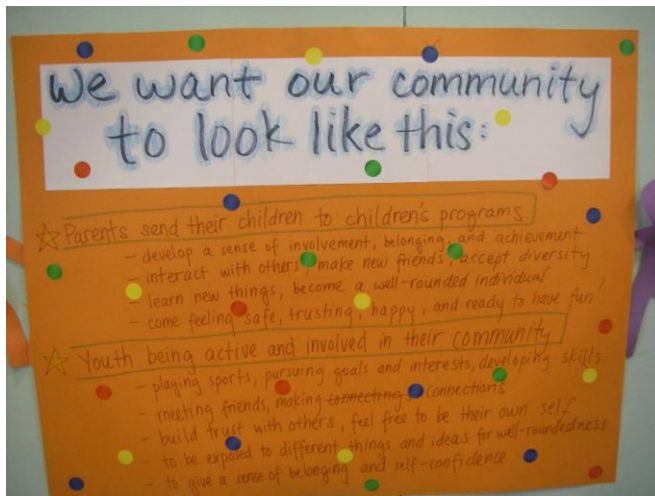 We want our community
to look like this:
Parents send their children to children's programs.
- develop a sense of involvement, belonging, and achievement
- interact with others, make new friends, accept diversity
- learn new things, become a well-rounded individual
- come feeling safe, trusting, happy, and ready to have fun!
Youth being active and involved in their community
- playing sports, pursuing goals and interests, developing skills
- meeting friends, making connecting connections
- build trust with others, feel free to be their own self
- to be exposed to different things and ideas for well-roundedness
- to give a sense of belonging and self-confidence